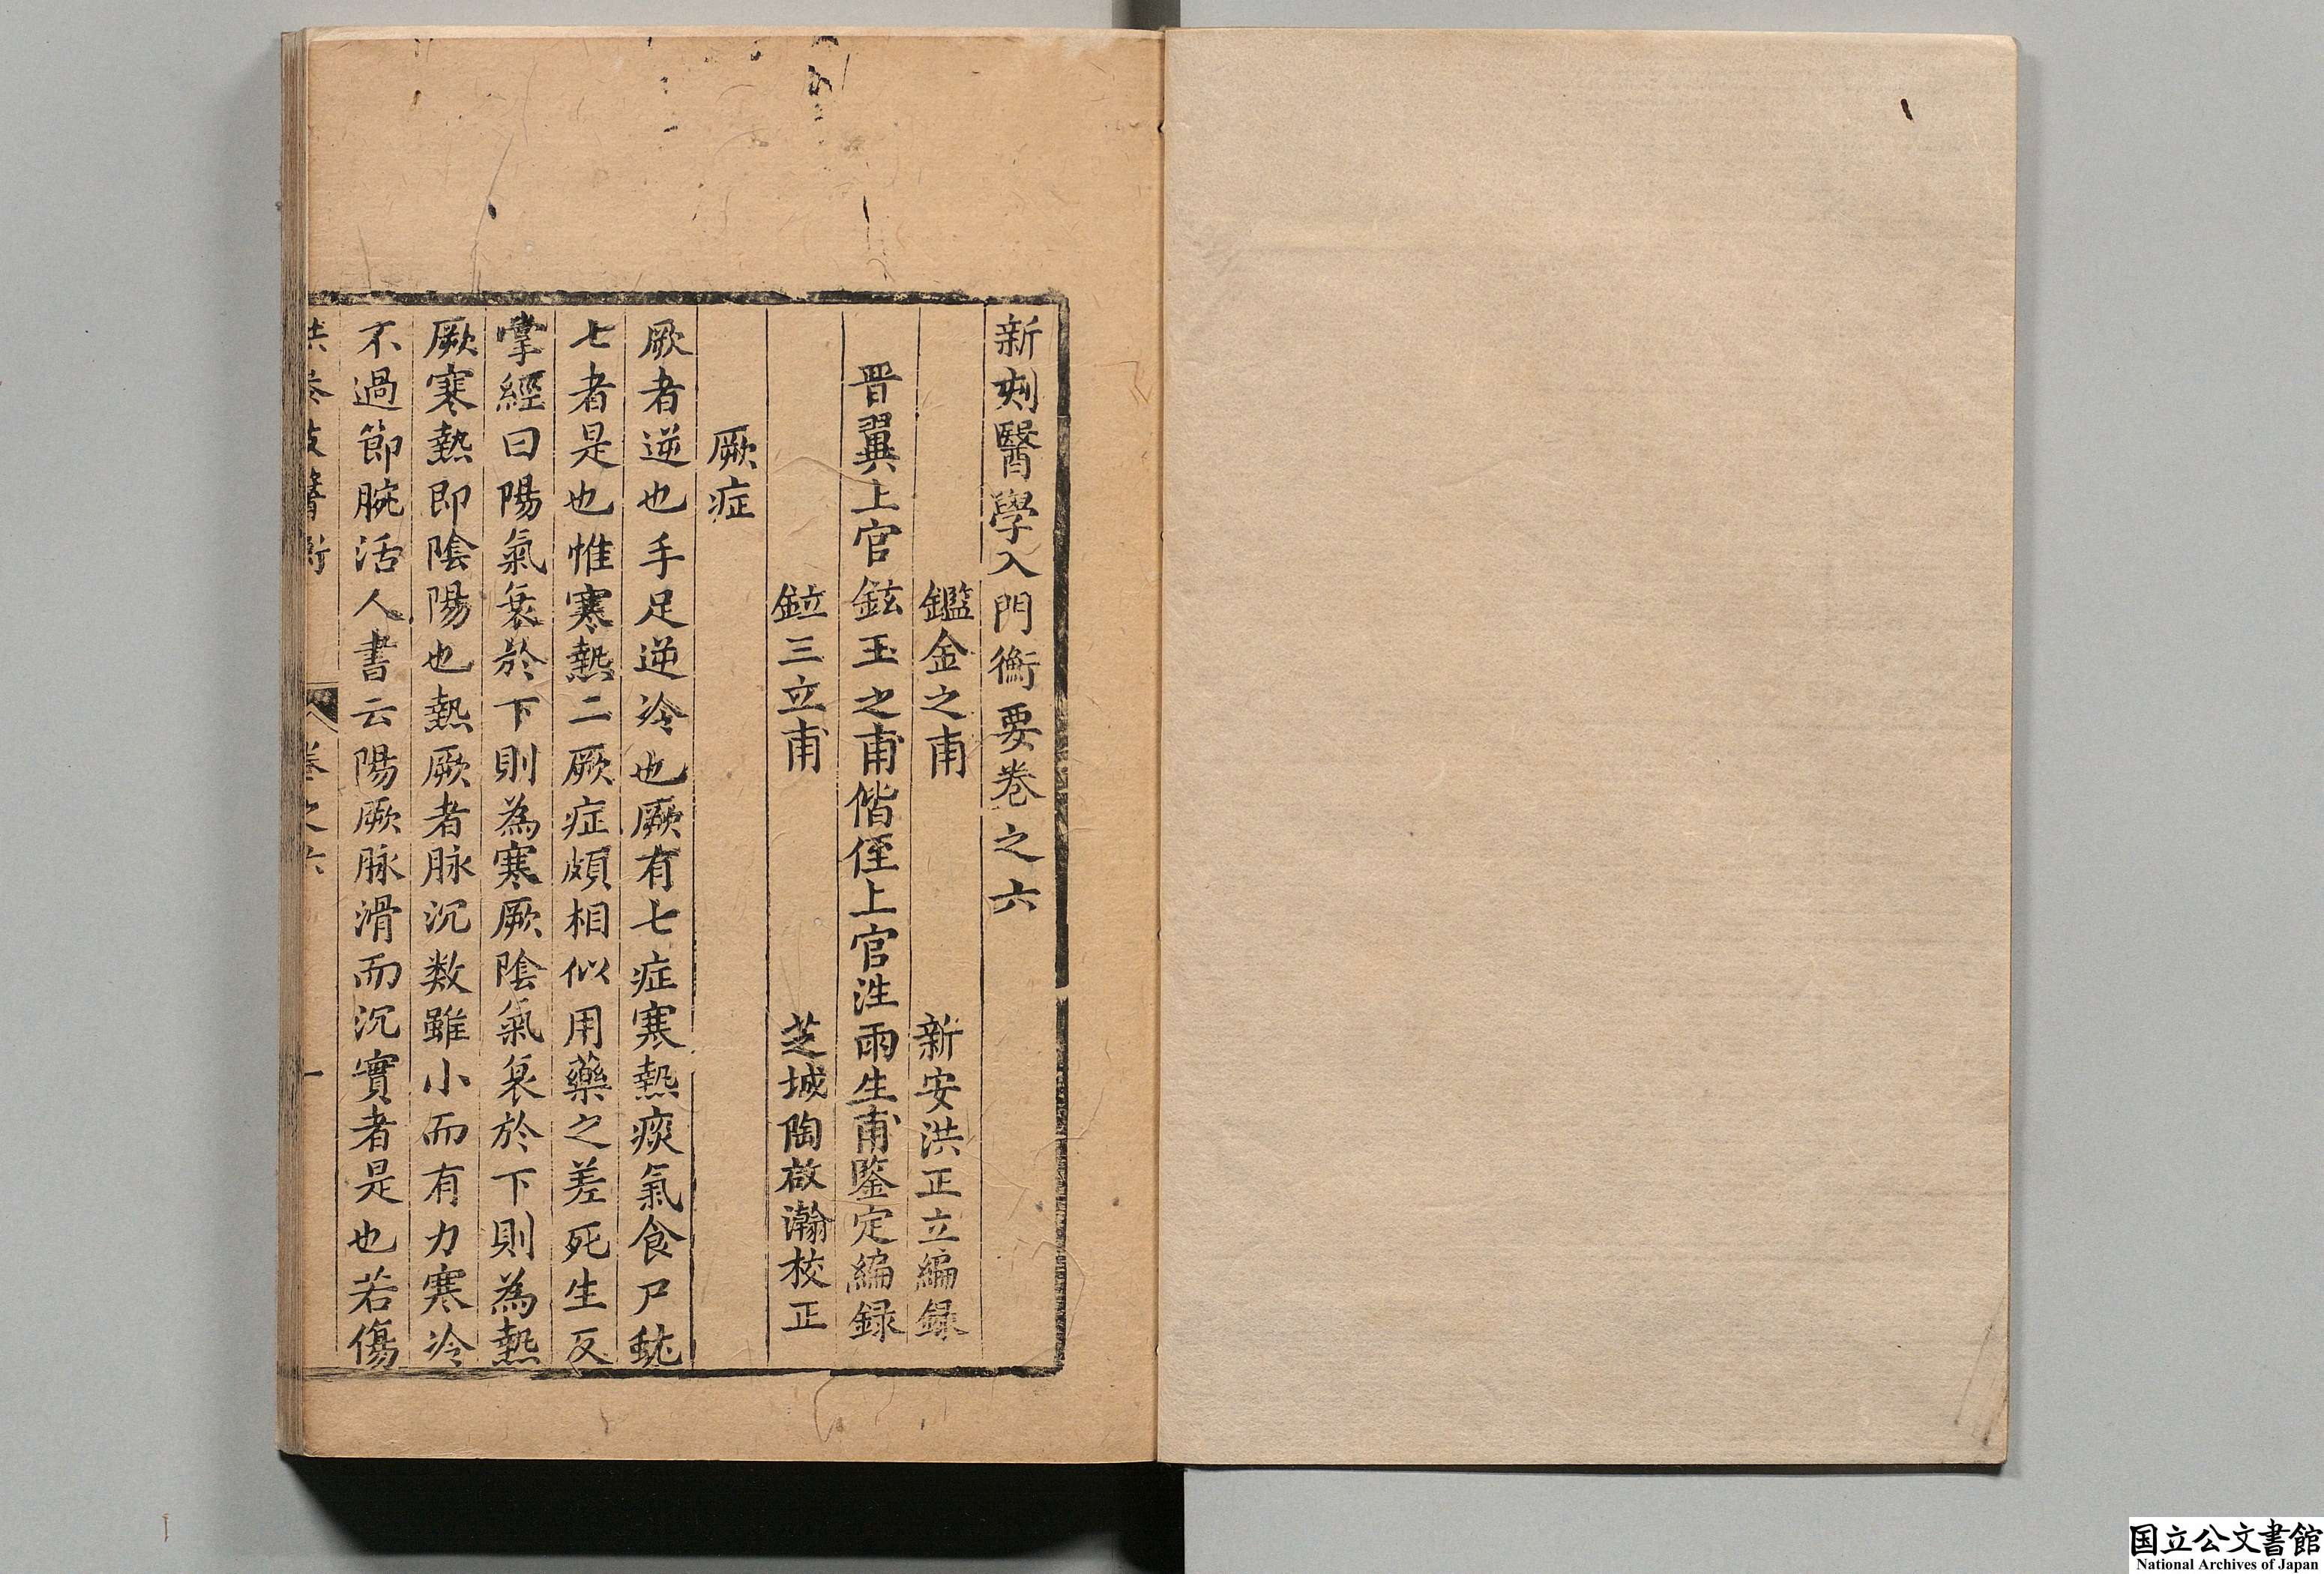 新刻醫學入門衡要卷之六
鑑金之甫　新安洪正立編録
晋翼上官鉉玉之甫偕侄上官泩雨生甫鑒定編録
鉝三立甫　芝城陶啟瀚校正
厥症
厥者逆也手足逆冷也厥有七症寒熱痰氣食尸蚘
七者是也惟寒熱二厥症頗相似用藥之差死生反
掌經曰陽氣衰於下則為寒厥陰氣衰於下則為熱
厥寒熱即陰陽也熱厥者脉沉数雖小而有力寒冷
不過節腕活人書云陽厥脉滑而沉實者是也若傷
卷之六
一
国立公文書館
National Archives of Japan